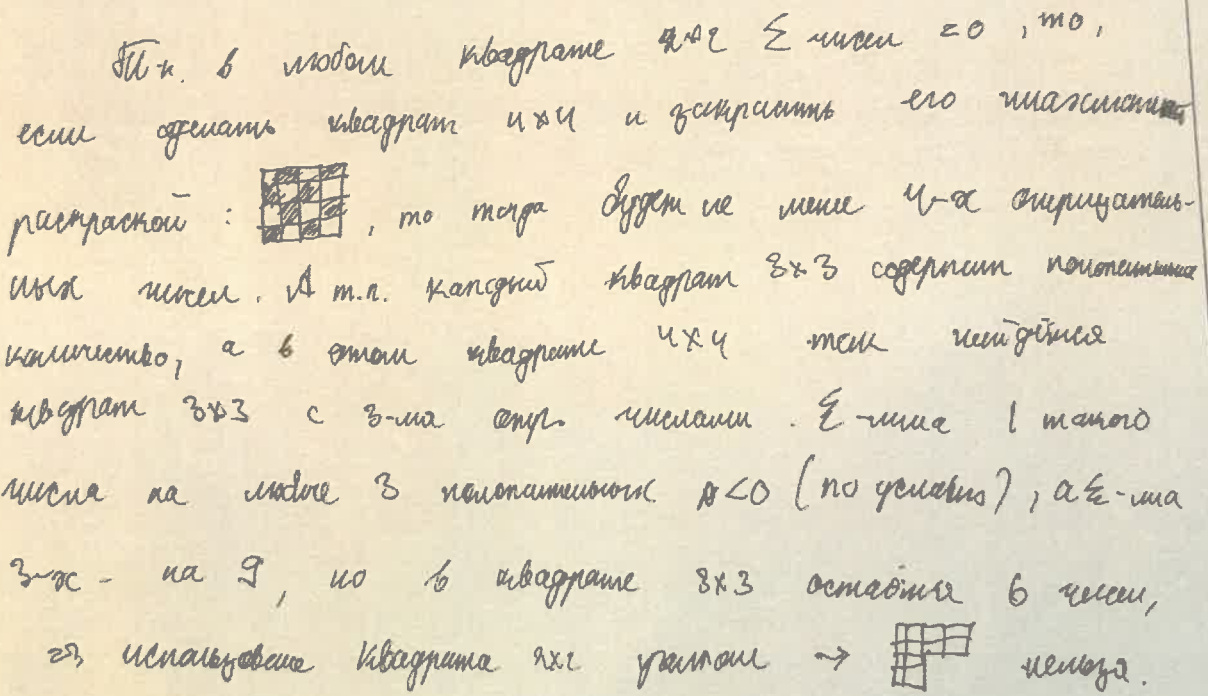 Т.к. в любом квадрате 2×2 Σ чисел =0, то,
если сделать квадрат 4×4 и закрасить его шахматной
раскраской: , то тогда будет не менее 4-х отрицатель-
ных чисел. А т.к. каждый квадрат 3×3 содержит положительное
количество, а в этом квадрате 4×4 так найдётся
квадрат 3×3 с 3-мя отр. числами. Σ-мма 1 такого
числа на любые 3 положительных <0 (по условию), а Σ-мма
3-х - на 9, но в квадрате 3×3 остаётся 6 чисел,
=> использование квадрата 2×2 углом → нельзя.